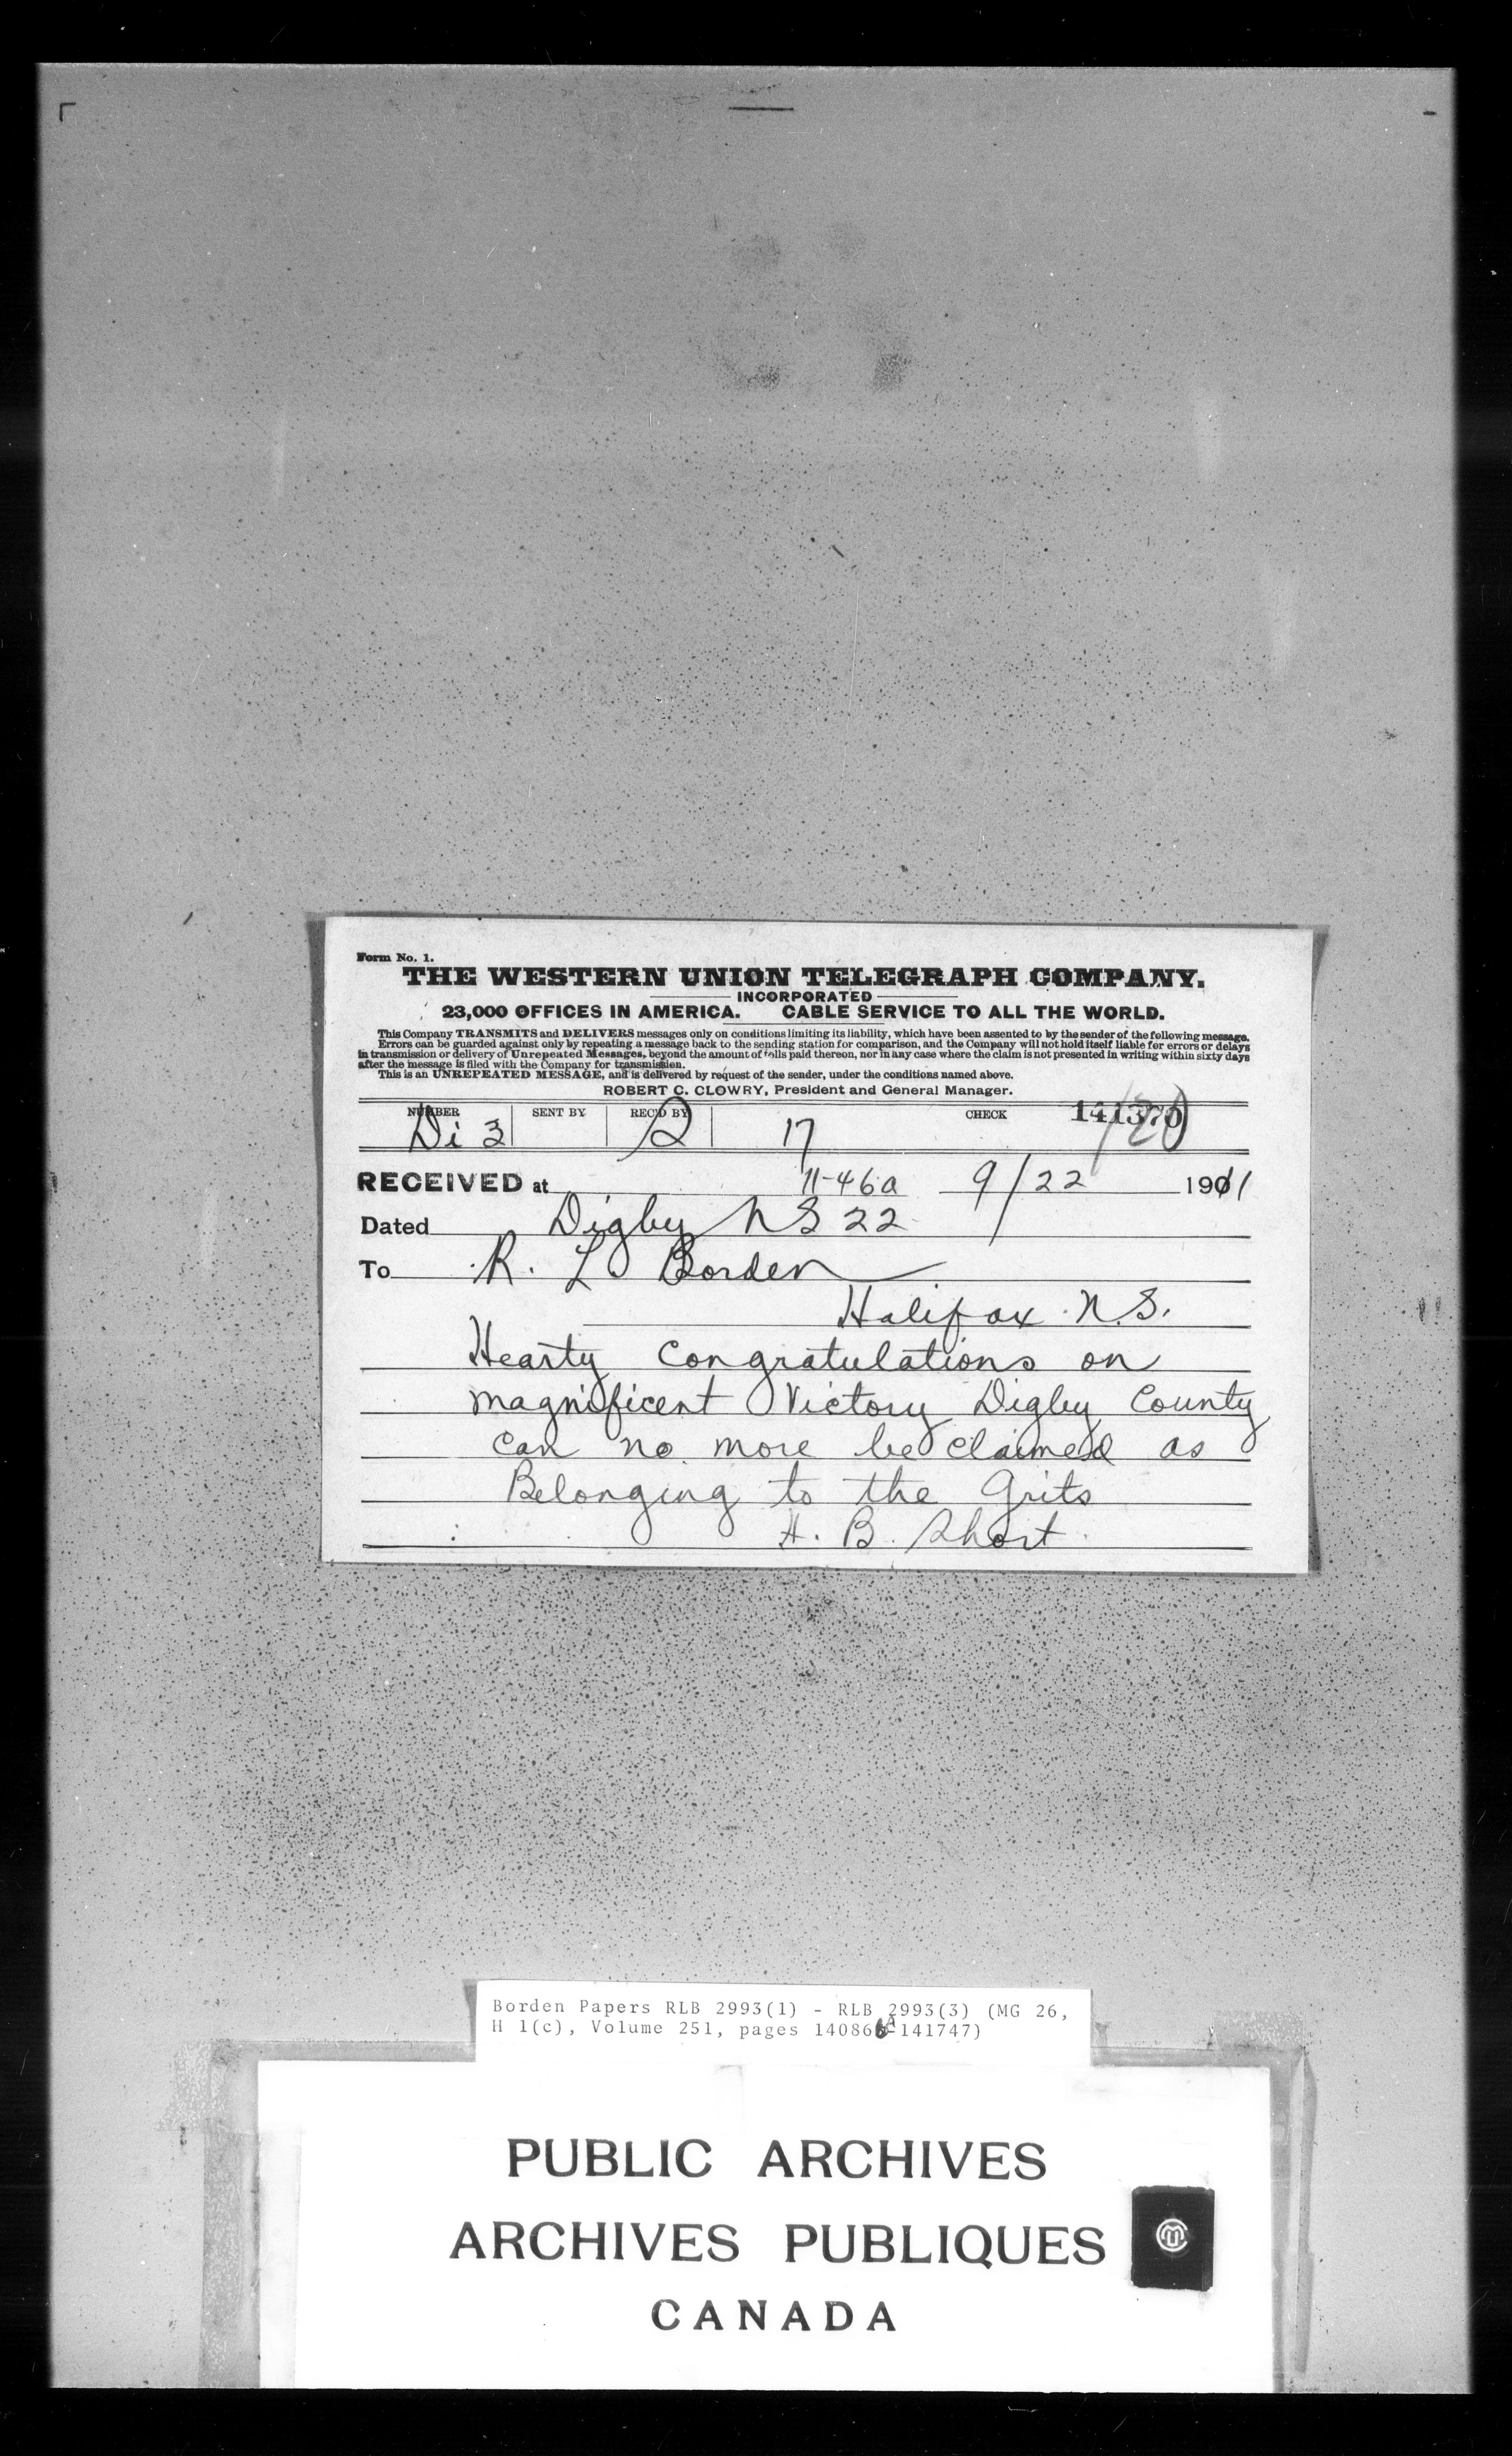 Form No. 1.
THE WESTERN UNION TELEGRAPH COMPANY.
INCORPORATED
23,000 OFFICES IN AMERICA. CABLE SERVICE TO ALL THE WORLD.
This Company TRANSMITS and DELIVERS messages only on conditions limiting its liability, which have been assented to by the sender of the following message.
Errors can be guarded against only by repeating a message back to the sending station for comparison, and the Company will not hold itself liable for errors or delays
in transmission or delivery of Unrepeated Messages, beyond the amount of tolls paid thereon, nor in any case where the claim is not presented in writing within sixty days
after the message is filed with the Company for transmission.
This is an UNREPEATED MESSAGE, and is delivered by request of the sender, under the conditions named above.
ROBERT C. CLOWRY, President and General Manager.
NUMBER SENT BY REC'D BY CHECK 141370
Di 3 17
RECEIVED at 11-46a 9/22 1911
Dated Digby NS 22
To R. L Borden
Halifax N.S.
Hearty Congratulations on
magnificent Victory Digby County
can no more be claimed as
Belonging to the Grits
H. B. Short
Borden Papers RLB 2993(1) - RLB 2993(3) (MG 26,
H 1(c), Volume 251, pages 140866A-141747)
PUBLIC ARCHIVES
ARCHIVES PUBLIQUES
CANADA